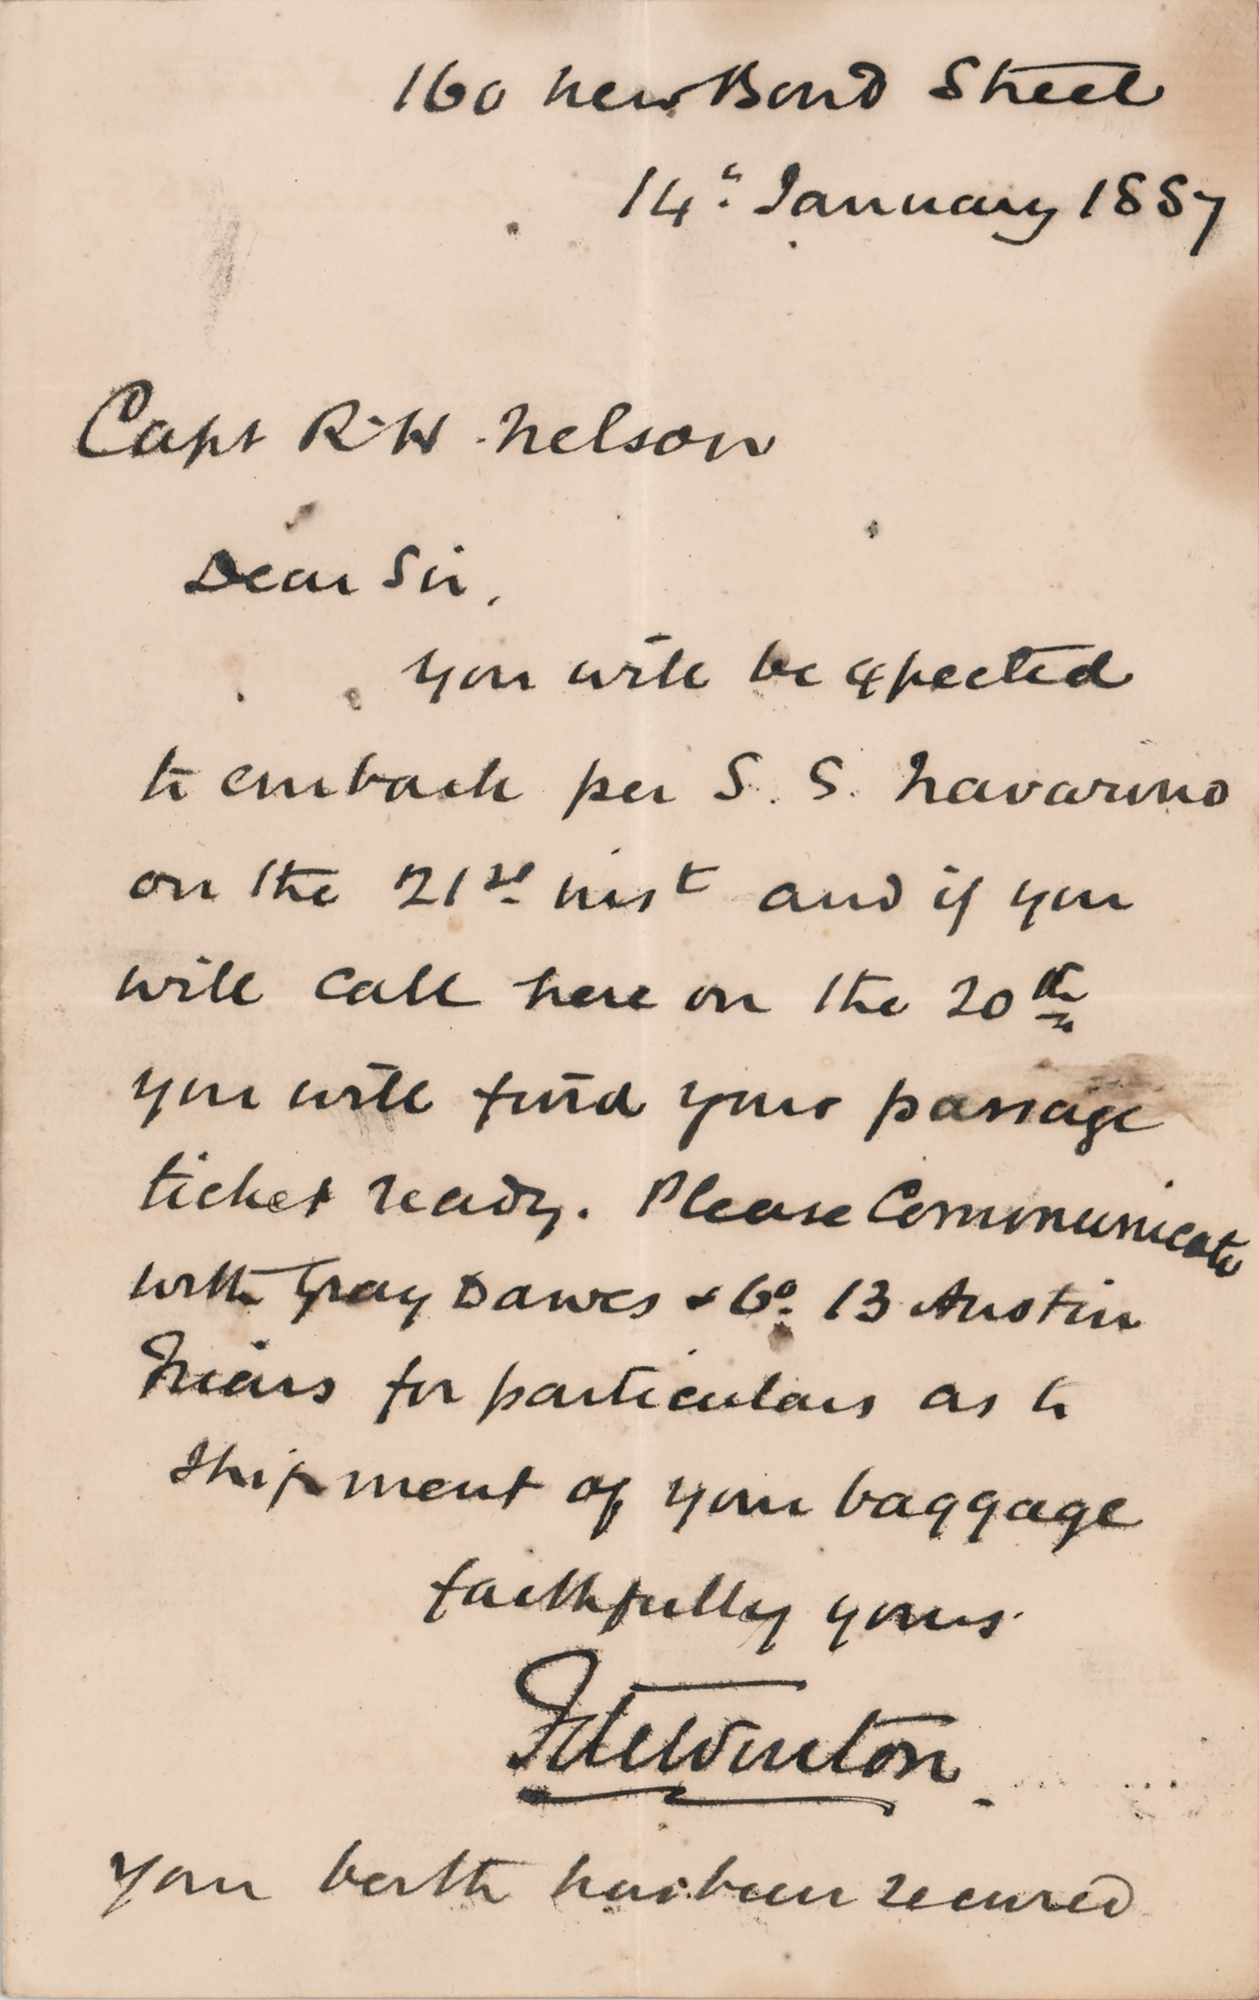 160 New Bond Street
14th January 1887
Capt R. H. Nelson
Dear Sir,
You will be expected
to embark per S. S. Navarino
on the 21st inst and if you
will call here on the 20th
you will find your passage
ticket ready. Please Communicate
with Gray Dawes & Co. 13 Austin
Friars for particulars as to
Shipment of your baggage
faithfully yours
F de Winton
Your berth has been secured